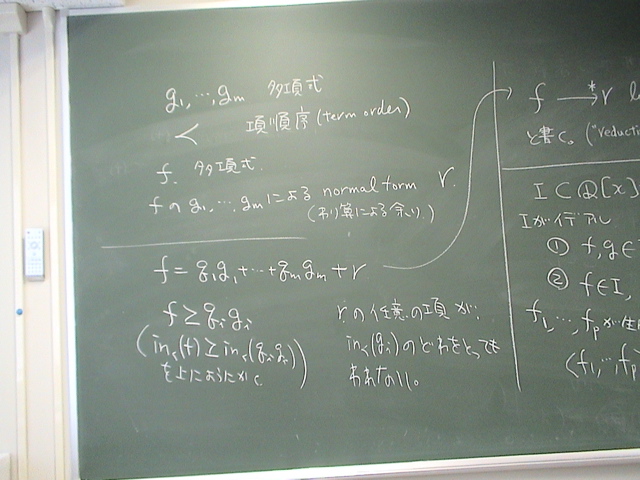 g₁, …, gₘ 多項式
< 項順序 (term order)
f. 多項式.
f の g₁, …, gₘ による normal form r.
(わり算による余り.)
f = q₁g₁ + … + qₘgₘ + r
f ≥ qᵢgᵢ
(in<(f) ≥ in<(qᵢgᵢ))
を上にようにかく
r の任意の項が、
in<(gᵢ) のどれをとっても
われない。
f →* r
と書く。("reducti
I ⊂ Q[x]
I がイデアル
① f, g ∈
② f ∈ I,
f₁, …, fₚ が生
⟨f₁, …, fₚ